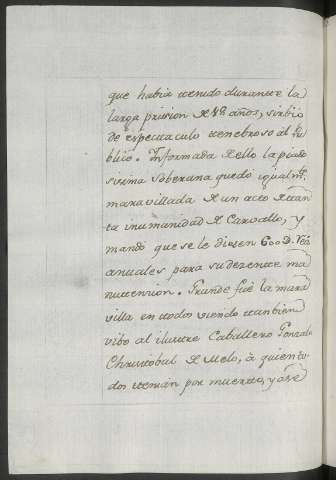 que habia tenido durante la
larga prision de 18 años, sirbio
de espectaculo tenebroso al Pu
blico. Informada de ello la piado
sisima Soberana quedo igualmte.
maravillada de un acto de tan
ta inumanidad de Carvallo, y
mandò que se le diesen 600 D. Res
anuales para su dezente ma
nutencion. Grande fuè la mara
villa en todos viendo tanbien
vibo al ilustre Caballero Gonzalo
Christobal de Melo, à quien to
dos tenian por muerto, y